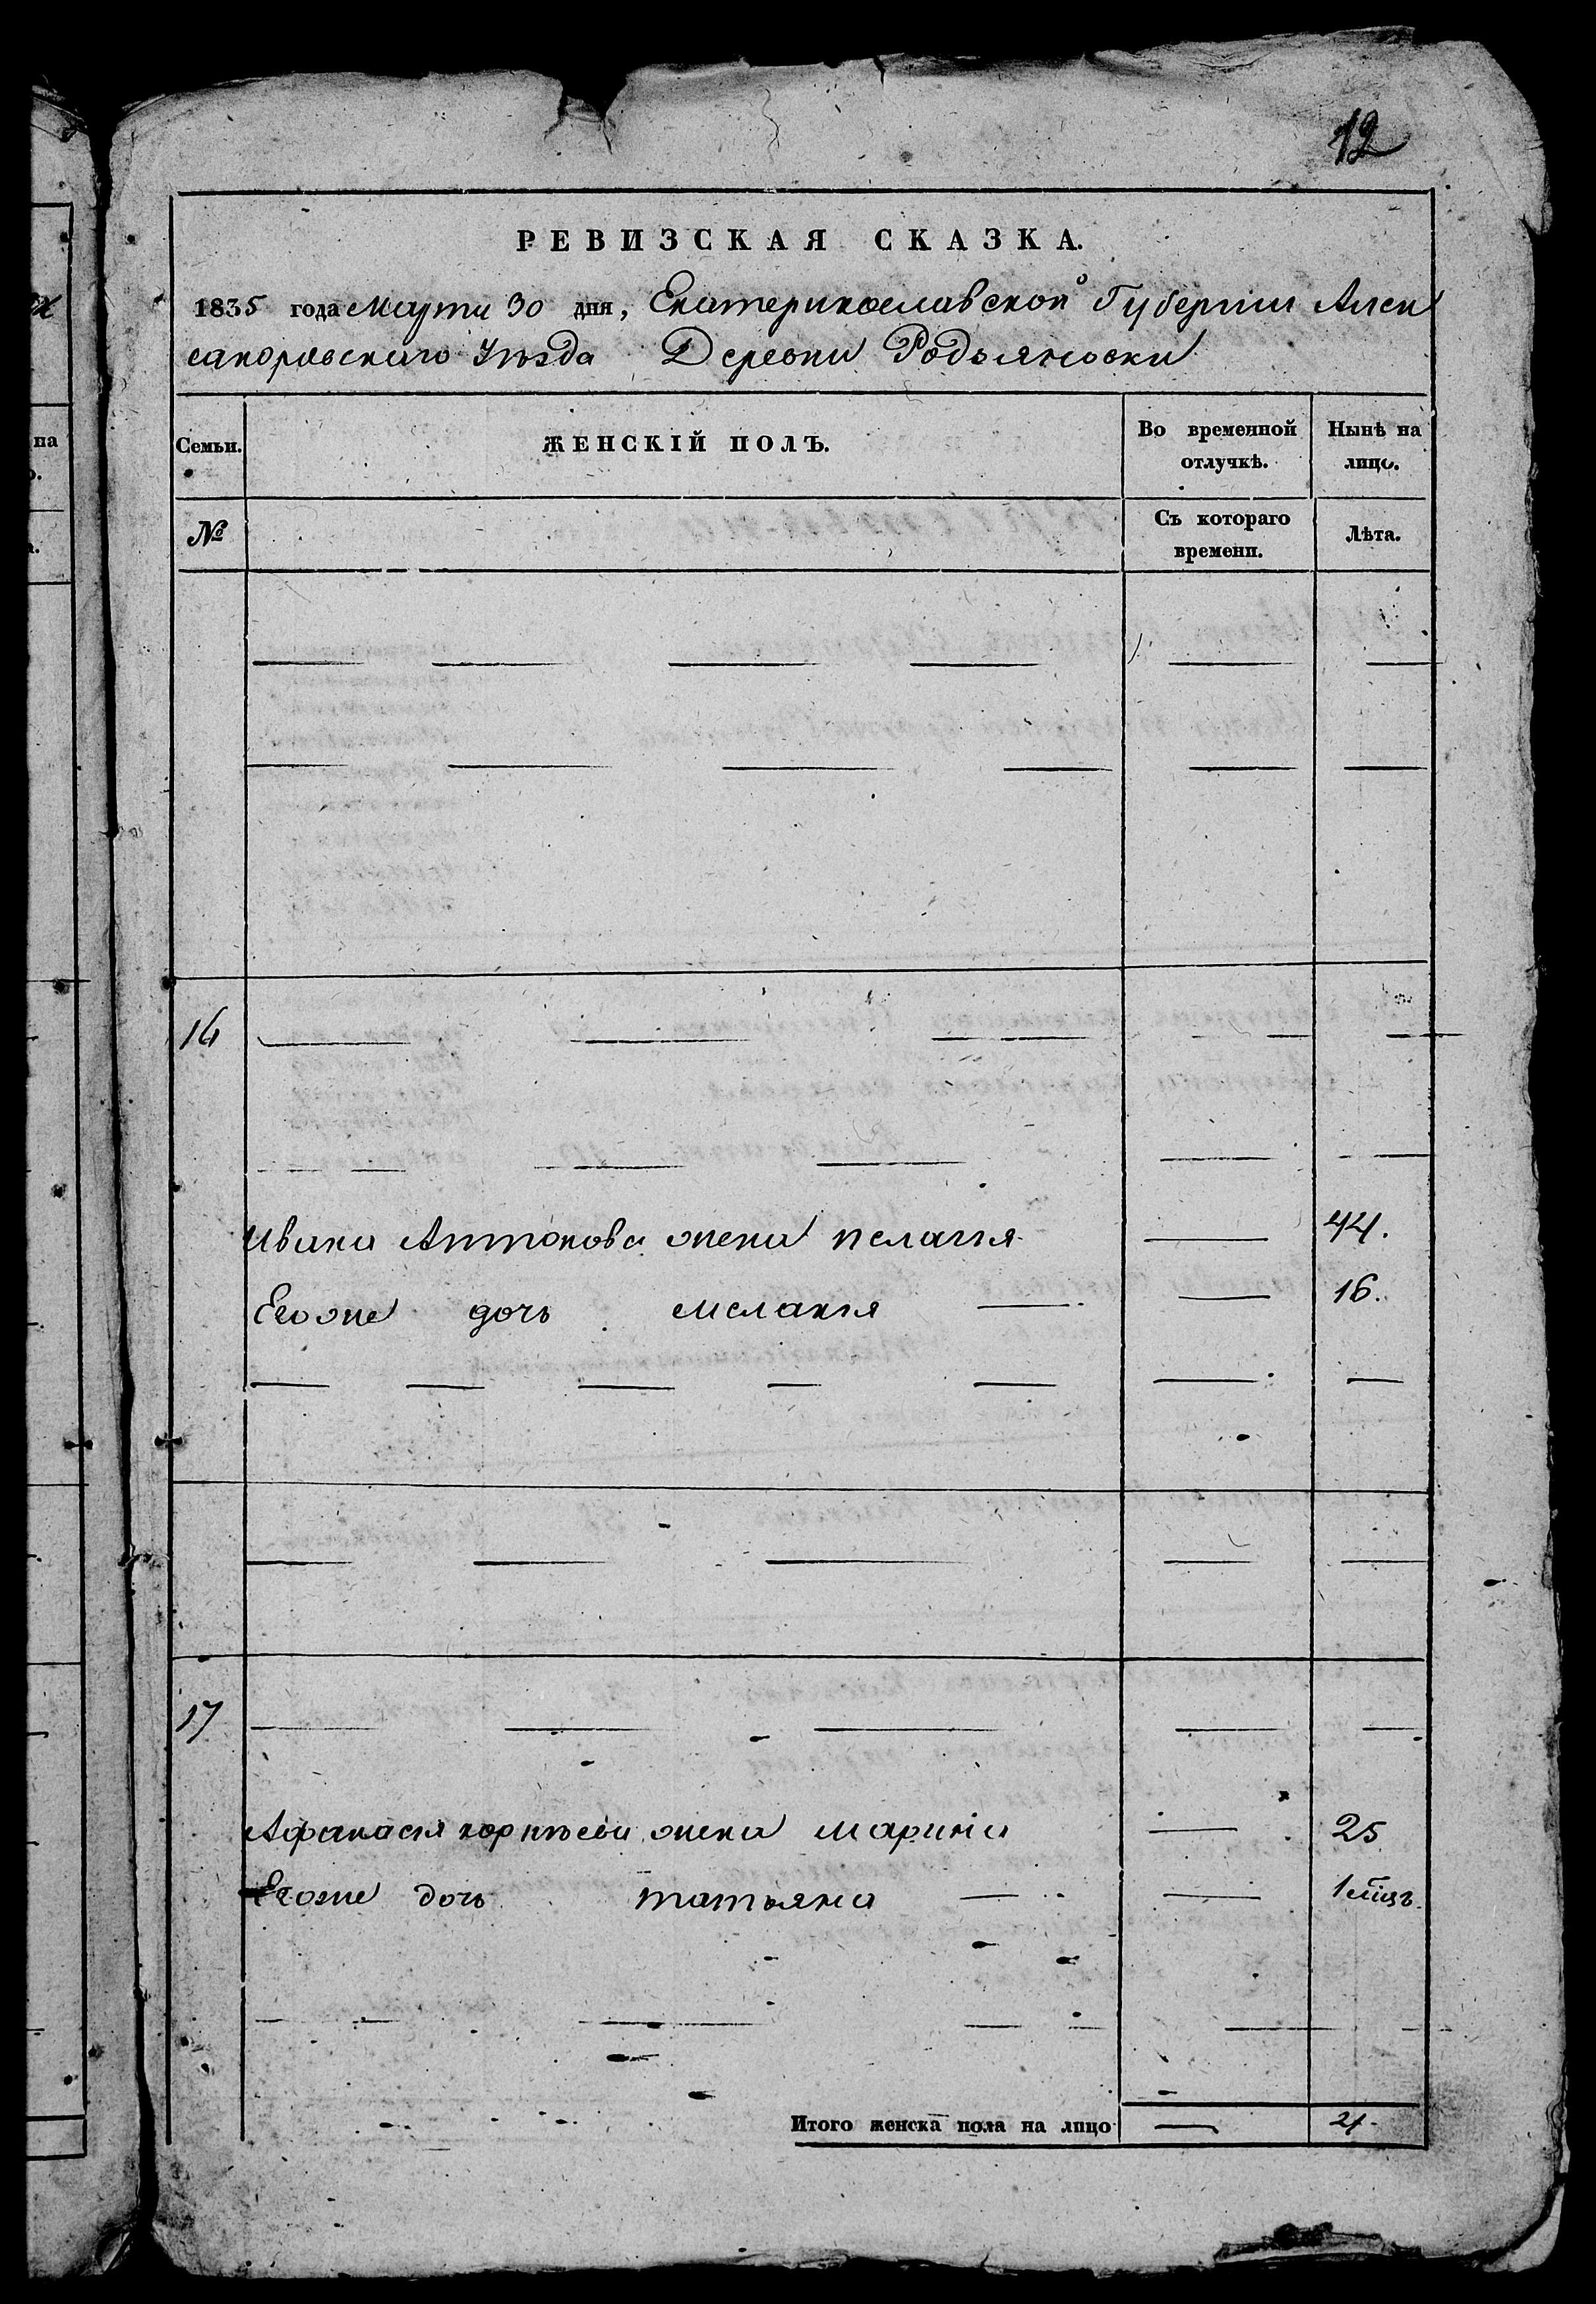 12
РЕВИЗСКАЯ СКАЗКА.
1835 года Марта 30 дня, Екатеринославской Губернии Алек
сандровскаго Уѣзда Деревни
Семьи. ЖЕНСКІЙ ПОЛЪ. Во временной отлучкѣ. Нынѣ на лицо.
№ Съ котораго времени. Лѣта.
16
Ивана Антонова жена пелагия 44.
Егоже дочь мелания 16.
17
Афанасия корнѣева жена марина 25
Егоже дочь татьяна 1 мцъ.
Итого женска пола на лицо 4